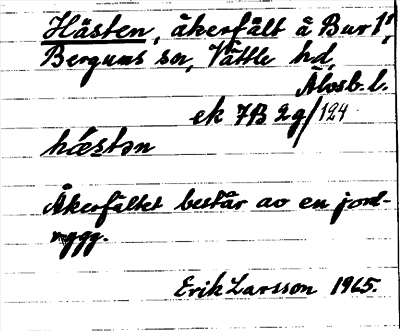 Hästen, åkerfält å Bur 1¹,
Bergums sn, Vättle hd,
Älvsb. l.
ek 7B 2g/124
hǽstən
Åkerfältet består av en jord-
rygg.
Erik Larsson 1965.